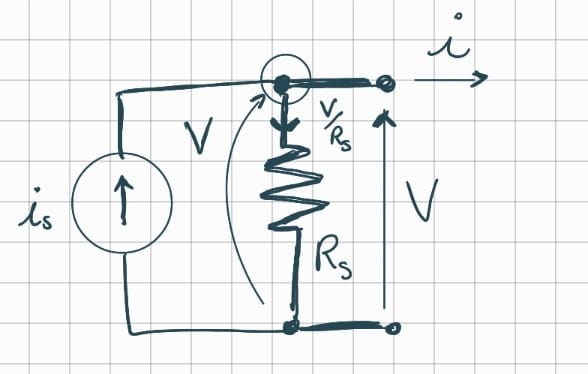 i
V
V/Rs
is
V
Rs